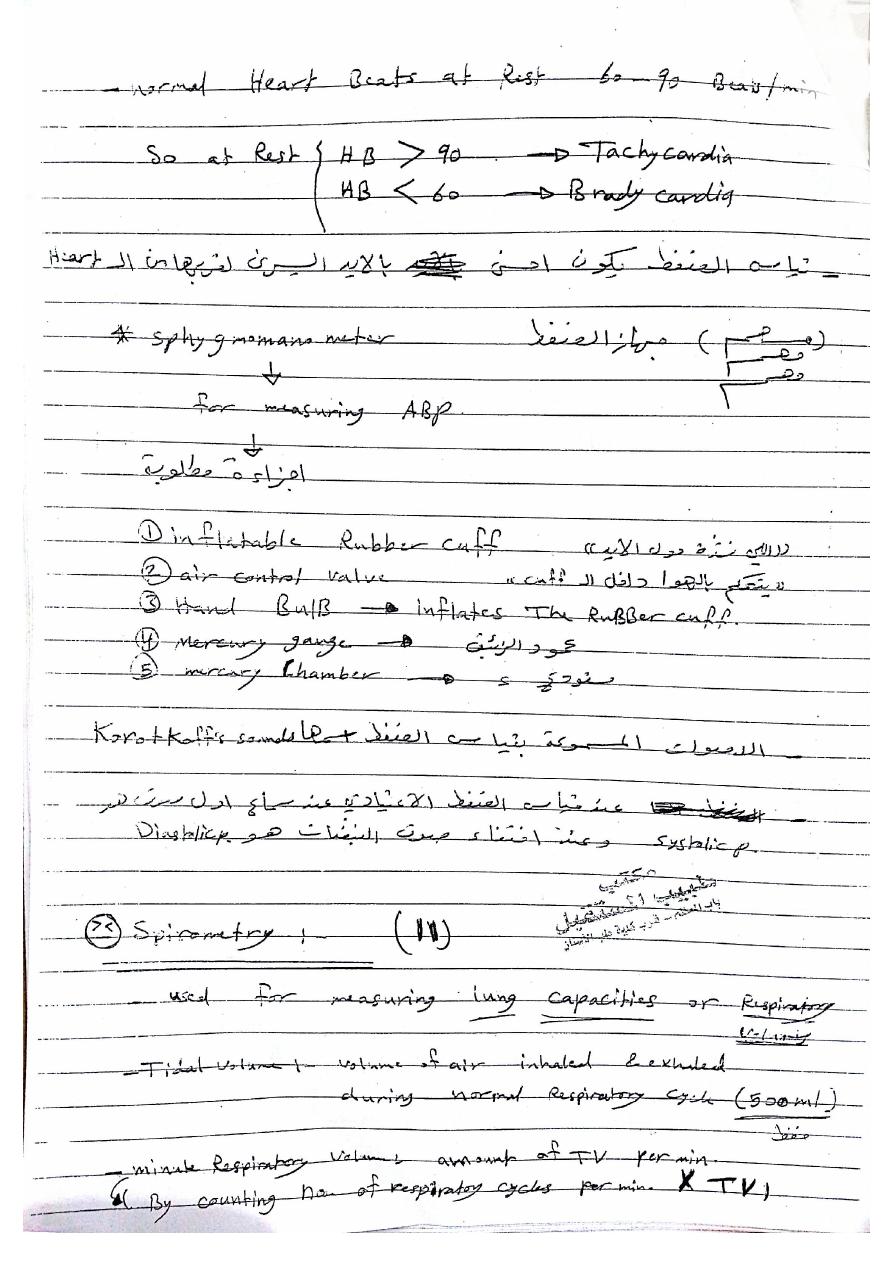 - normal Heart Beats at Rest 60-90 Beats/min
So at Rest { HB > 90 → Tachycardia
HB < 60 → Brady cardia
- قياس الضغط يكون احسن بالايد اليسرى لقربها من الـ Heart
* sphygmomanometer جهاز الضغط (مهم
وهم
وهم
↓
for measuring ABP.
↓
اجزاءة مطلوبة
① inflatable Rubber cuff ((اللي حول الايد))
② air control valve ((يتحكم بالهوا داخل الـ cuff))
③ Hand Bulb → inflates The Rubber cuff.
④ Mercury gauge → عمود الزئبق
⑤ mercury Chamber →
- الاصوات المسموعة بقياس الضغط اسمها Korotkoff's sounds
- عند قياس الضغط الاعتيادي عند سماع اول صوت هو
systolic p. وعند اختفاء صوت النبضات هو Diastolic p
مكتب
طبيب المستقبل
باب المعظم - قرب كلية طب الاسنان
Spirometry : (11)
- used for measuring lung capacities or Respiratory
Volumes
- Tidal volume :- volume of air inhaled & exhaled
during normal Respiratory Cycle (500ml)
حفظ
- minute Respiratory Volume: amount of TV per min.
By counting no. of respiratory cycles per min. X TV